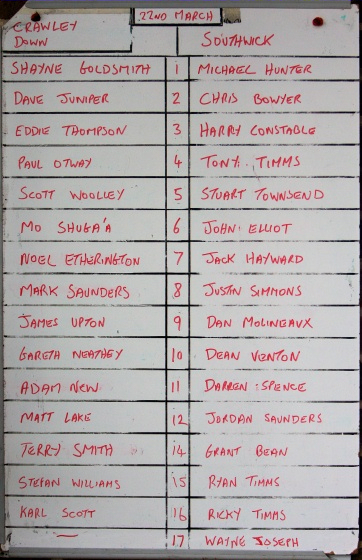 22ND MARCH
CRAWLEY DOWN SOUTHWICK
SHAYNE GOLDSMITH 1 MICHAEL HUNTER
DAVE JUNIPER 2 CHRIS BOWYER
EDDIE THOMPSON 3 HARRY CONSTABLE
PAUL OTWAY 4 TONY TIMMS
SCOTT WOOLLEY 5 STUART TOWNSEND
MO SHUGA'A 6 JOHN ELLIOT
NOEL ETHERINGTON 7 JACK HAYWARD
MARK SAUNDERS 8 JUSTIN SIMMONS
JAMES UPTON 9 DAN MOLINEAUX
GARETH NEATHEY 10 DEAN VENTON
ADAM NEW 11 DARREN SPENCE
MATT LAKE 12 JORDAN SAUNDERS
TERRY SMITH 14 GRANT BEAN
STEFAN WILLIAMS 15 RYAN TIMMS
KARL SCOTT 16 RICKY TIMMS
— 17 WAYNE JOSEPH